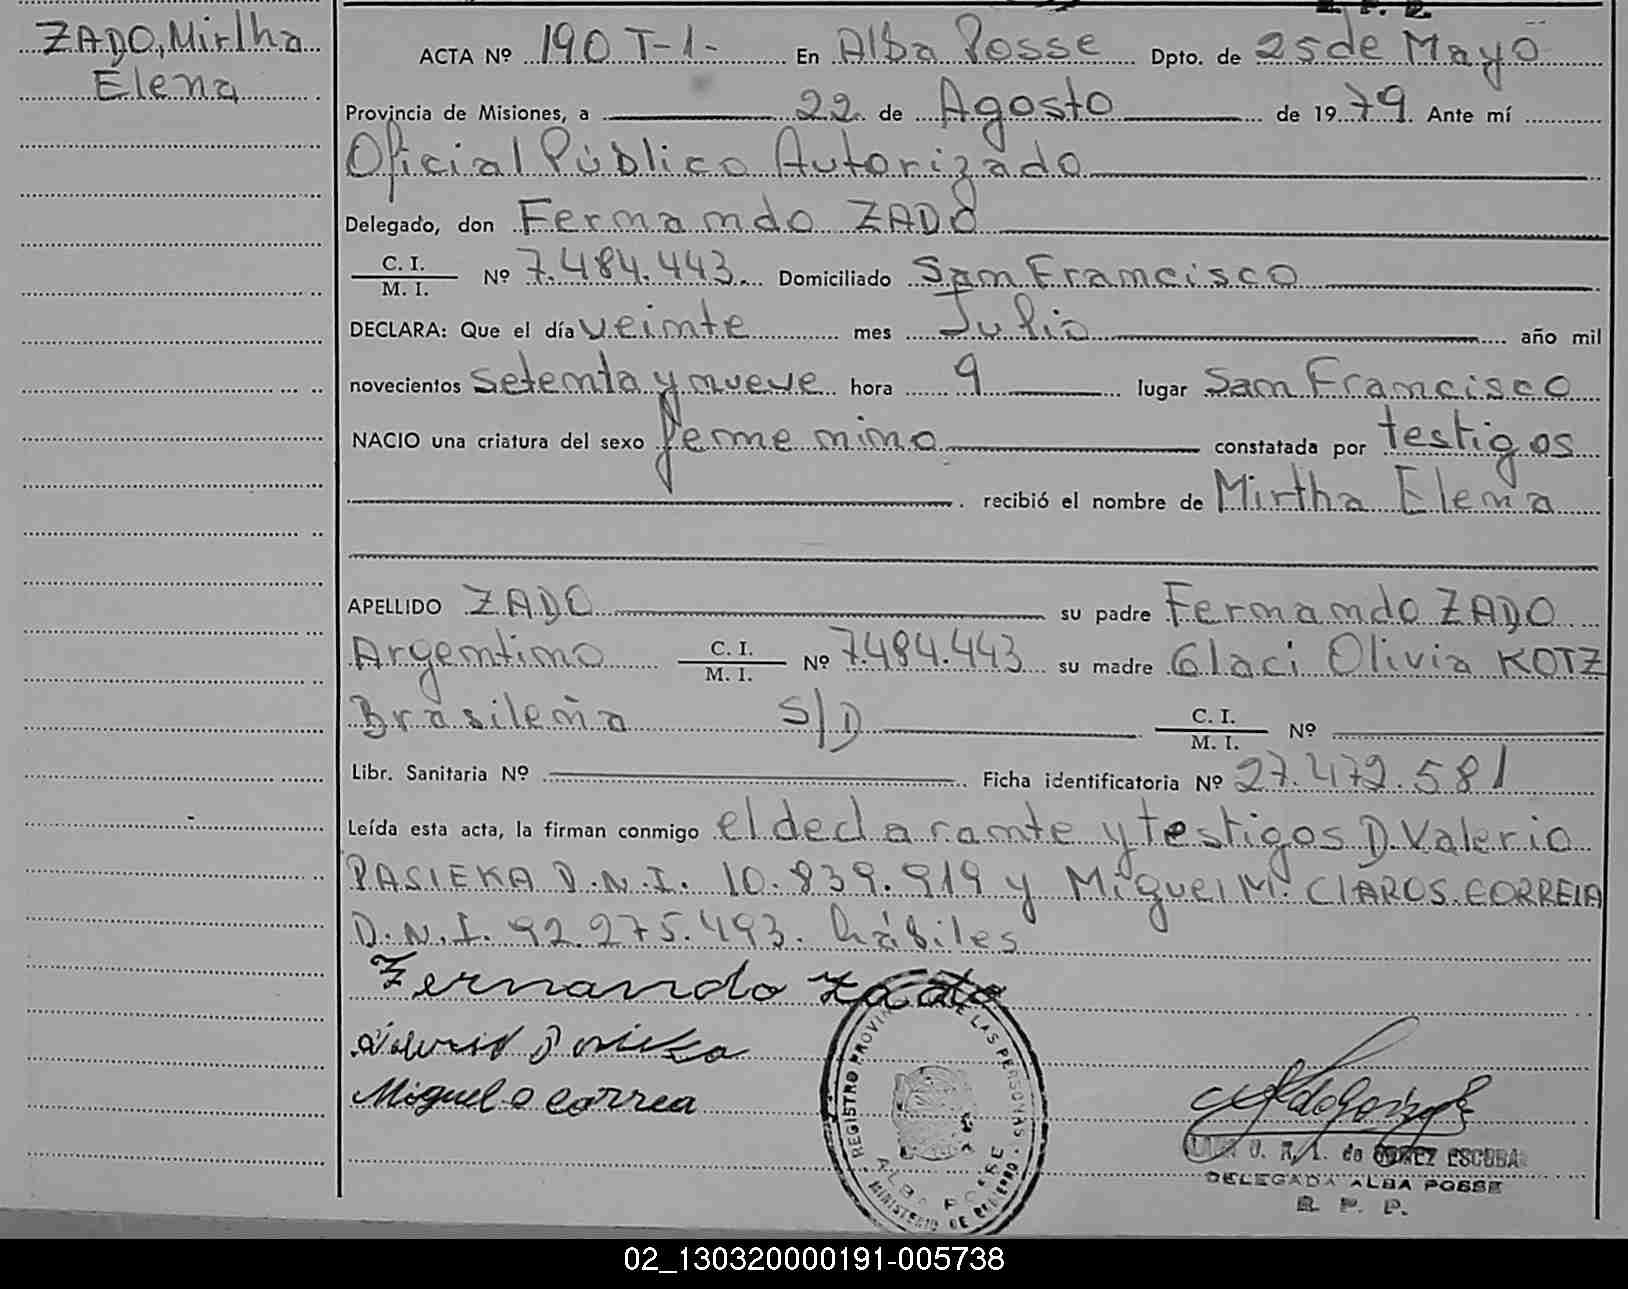 ZADO, Mirtha
Elena
ACTA Nº 190 T-1- En Alba Posse Dpto. de 25 de Mayo
Provincia de Misiones, a 22 de Agosto de 1979. Ante mí
Oficial Público Autorizado
Delegado, don Fernando ZADO
C. I.
M. I. Nº 7.484.443 Domiciliado San Francisco
DECLARA: Que el día veinte mes Julio año mil
novecientos setenta y nueve hora 9 lugar San Francisco
NACIO una criatura del sexo femenino constatada por testigos
. recibió el nombre de Mirtha Elena
APELLIDO ZADO su padre Fernando ZADO
Argentino C. I.
M. I. Nº 7.484.443 su madre Glaci Olivia KOTZ
Brasileña S/D C. I.
M. I. Nº
Libr. Sanitaria Nº Ficha identificatoria Nº 27.472.581
Leída esta acta, la firman conmigo el declarante y testigos D. Valerio
PASIEKA D.N.I. 10.839.919 y Miguel M. CLAROS CORREIA
D.N.I. 92.275.493. hábiles
Fernando Zado
Miguel C Correa
REGISTRO PROVINCIAL DE LAS PERSONAS
ALBA POSSE
MINISTERIO DE GOBIERNO
DELEGADA ALBA POSSE
R. P. P.
02_130320000191-005738